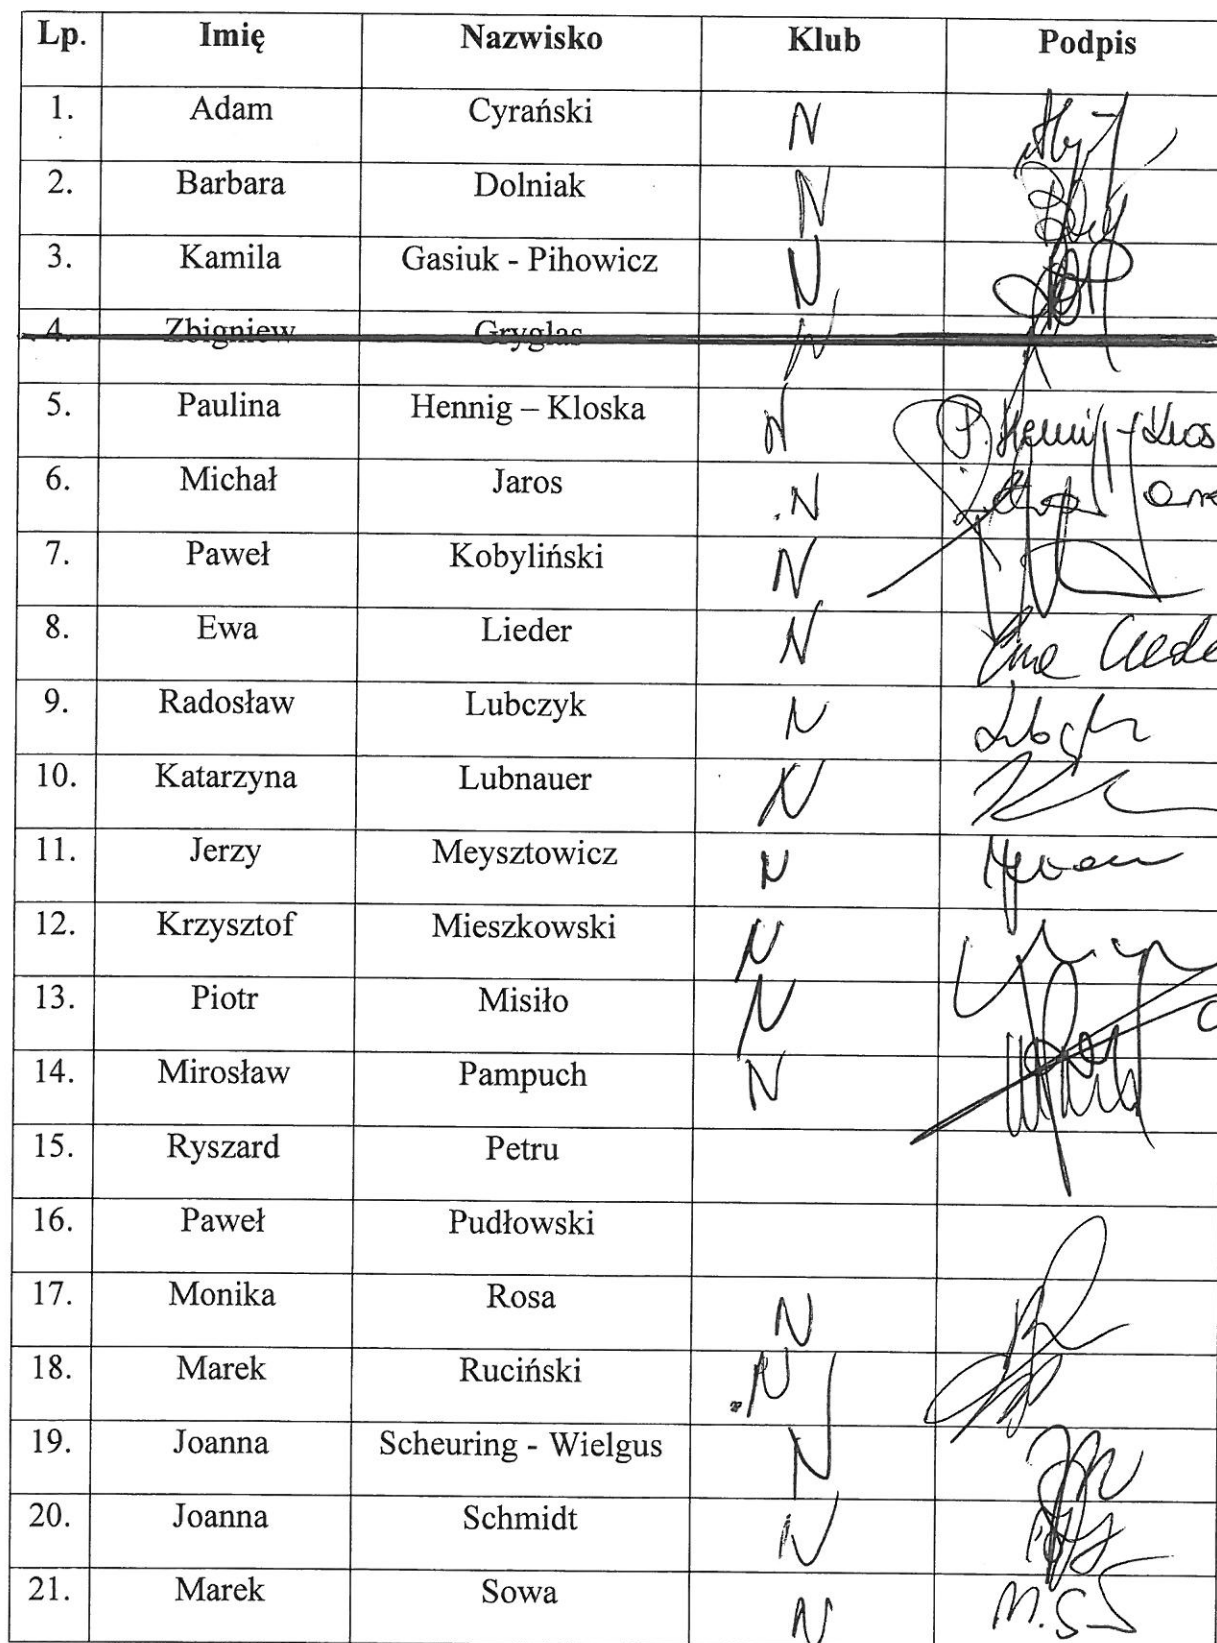 Lp. Imię Nazwisko Klub Podpis
1. Adam Cyrański N
2. Barbara Dolniak N
3. Kamila Gasiuk - Pihowicz N
4. Zbigniew Gryglas N
5. Paulina Hennig – Kloska N P. Hennig-Klos
6. Michał Jaros N
7. Paweł Kobyliński N
8. Ewa Lieder N Ewa Liede
9. Radosław Lubczyk N
10. Katarzyna Lubnauer N
11. Jerzy Meysztowicz N
12. Krzysztof Mieszkowski N
13. Piotr Misiło N
14. Mirosław Pampuch N
15. Ryszard Petru
16. Paweł Pudłowski
17. Monika Rosa N
18. Marek Ruciński N
19. Joanna Scheuring - Wielgus N
20. Joanna Schmidt N
21. Marek Sowa N M. S